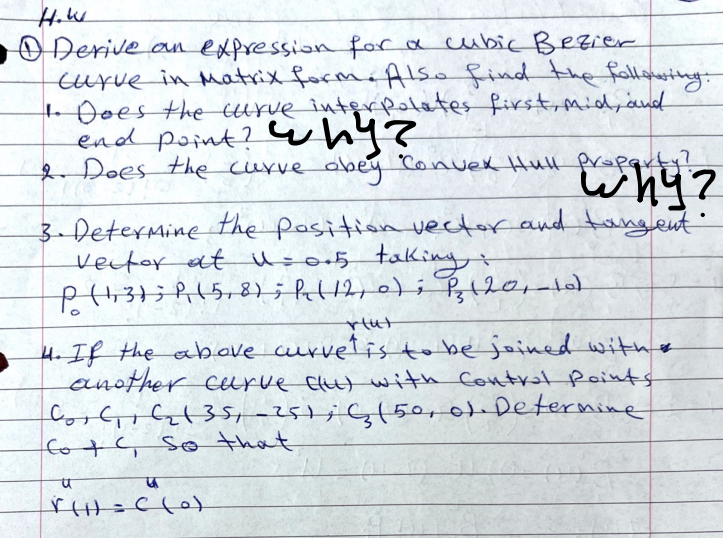 H.W
① Derive an expression for a cubic Bezier
curve in Matrix form. Also find the following:
1. Does the curve interpolates first, mid, and
end point? why?
2. Does the curve obey Convex Hull Property?
why?
3. Determine the position vector and tangent
vector at u = 0.5 taking:
P₀ (1,3); P₁ (5,8); P₂ (12,0); P₃ (20,-10)
r(u)
4. If the above curve ↑ is to be joined with
another curve c(u) with control points
C₀, C₁, C₂ (35, -25); C₃ (50, 0). Determine
C₀ + C₁ so that
u u
r(1) = C(0)